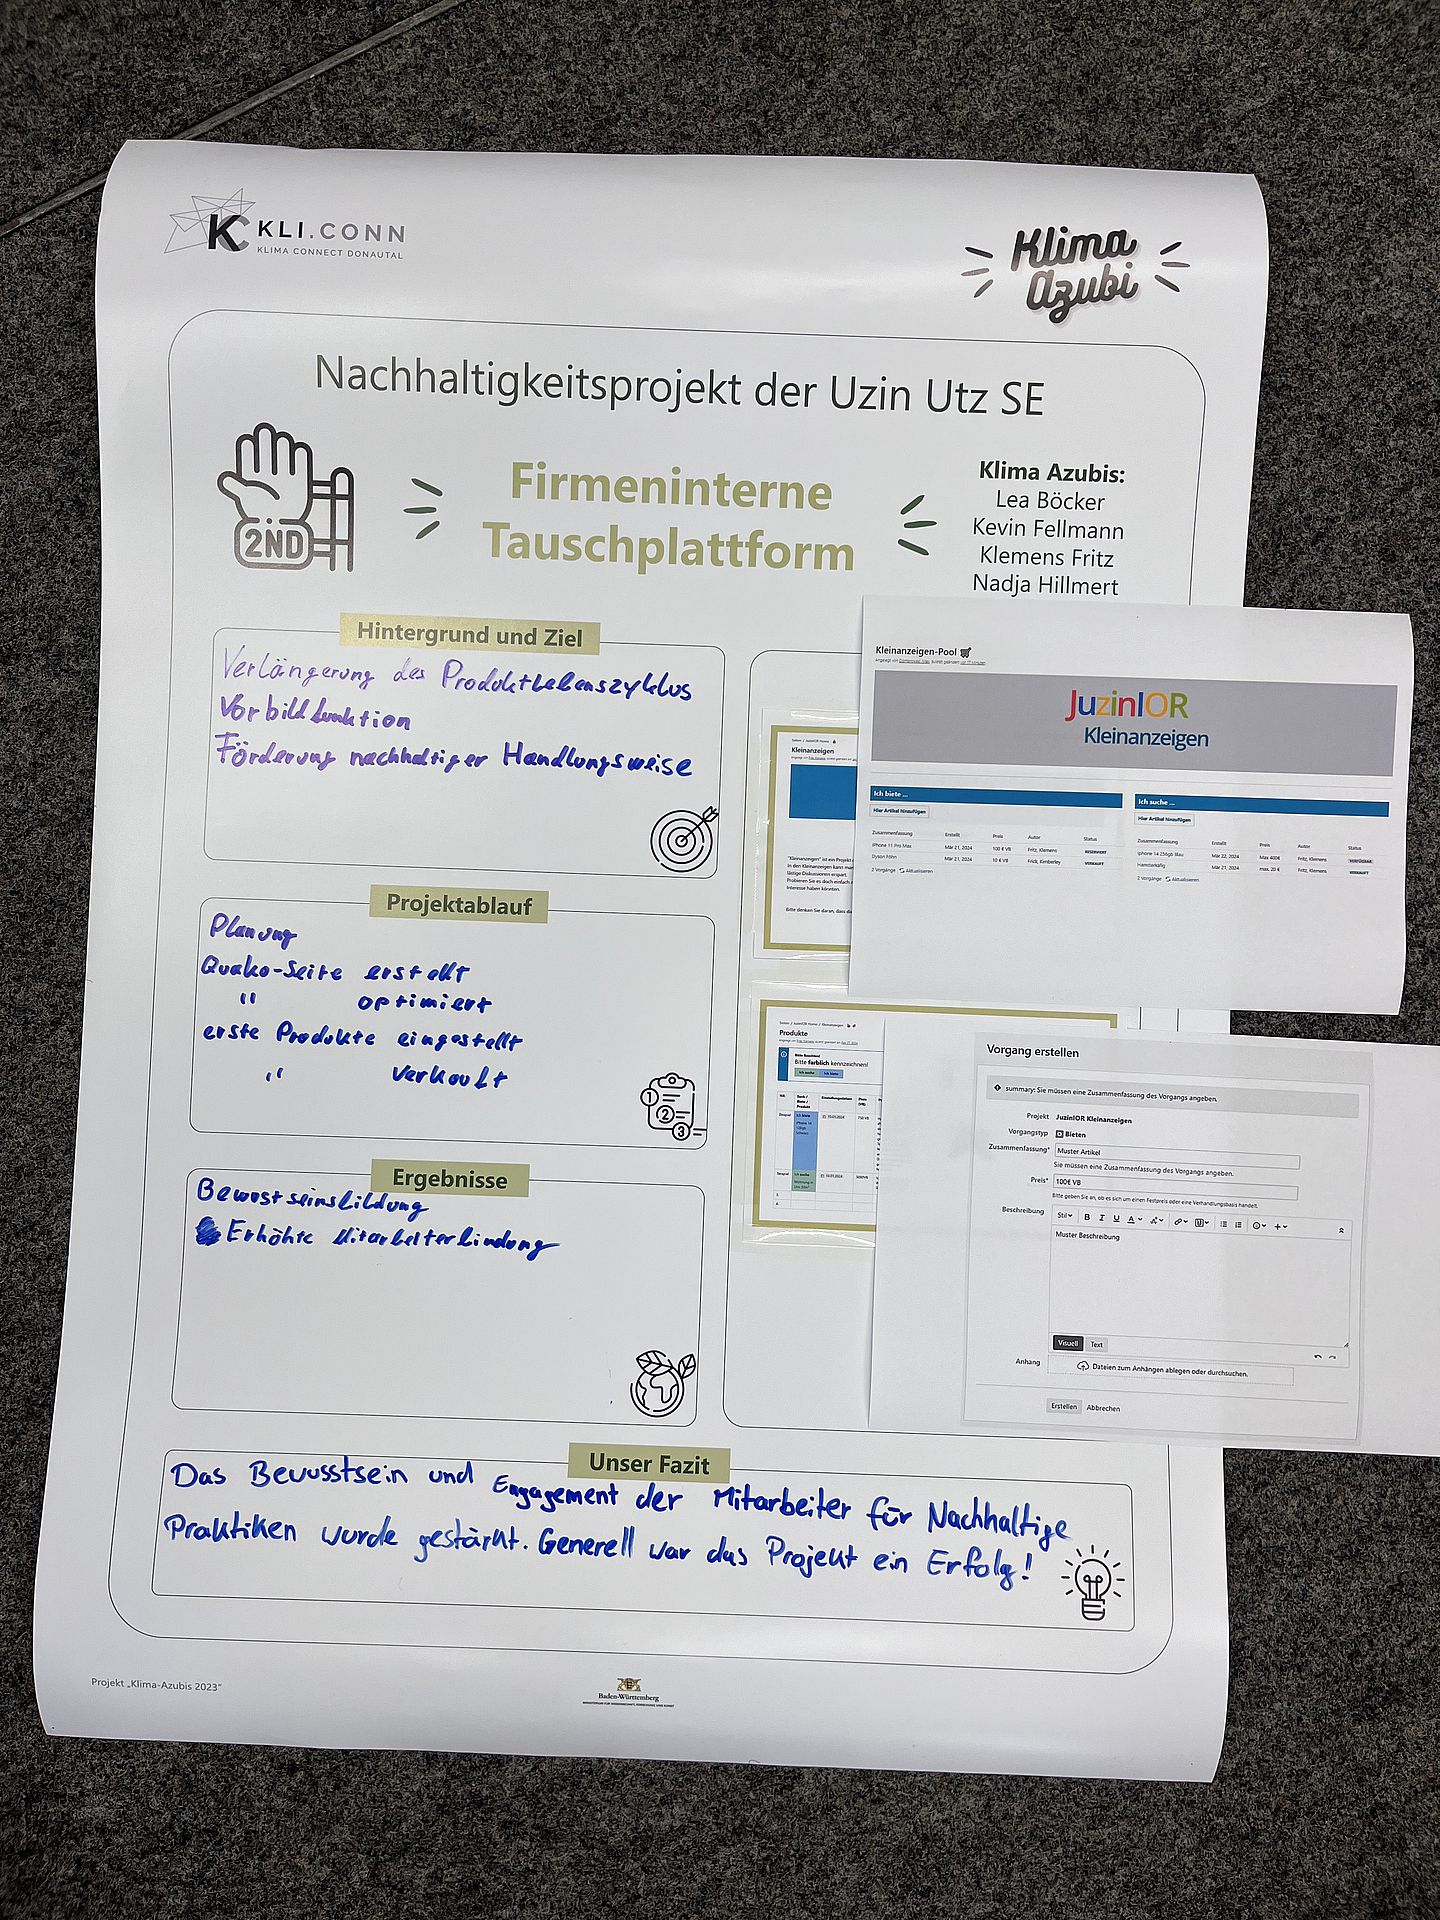 KC KLI.CONN
KLIMA CONNECT DONAUTAL
Klima
Azubi
Nachhaltigkeitsprojekt der Uzin Utz SE
2ND
Firmeninterne
Tauschplattform
Klima Azubis:
Lea Böcker
Kevin Fellmann
Klemens Fritz
Nadja Hillmert
Hintergrund und Ziel
Verlängerung des Produktlebenszyklus
Vorbildfunktion
Förderung nachhaltiger Handlungsweise
Projektablauf
Planung
Quako-Seite erstellt
" optimiert
erste Produkte eingestellt
" verkauft
1
2
3
Ergebnisse
Bewustseinsbildung
Erhöhte Mitarbeiterbindung
Kleinanzeigen-Pool
JuzinIOR
Kleinanzeigen
Ich biete ...
Hier Artikel hinzufügen
Zusammenfassung Erstellt Preis Autor Status
iPhone 11 Pro Max Mär 21, 2024 100 € VB Fritz, Klemens RESERVIERT
Dyson Föhn Mär 21, 2024 10 € VB Frick, Kimberley VERKAUFT
2 Vorgänge Aktualisieren
Ich suche ...
Hier Artikel hinzufügen
Zusammenfassung Erstellt Preis Autor Status
iphone 14 256gb Blau Mär 22, 2024 Max 400€ Fritz, Klemens VERFÜGBAR
Hamsterkäfig Mär 21, 2024 max. 20 € Fritz, Klemens VERKAUFT
2 Vorgänge Aktualisieren
Kleinanzeigen
"Kleinanzeigen" ist ein Projekt
In den Kleinanzeigen kann
lästige Diskussionen erspart.
Probieren Sie es doch einfach
Interesse haben könnten.
Bitte denken Sie daran, dass
Produkte
Bitte Beachten!
Bitte farblich kennzeichnen!
Ich suche Ich biete
Vorgang erstellen
summary: Sie müssen eine Zusammenfassung des Vorgangs angeben.
Projekt JuzinIOR Kleinanzeigen
Vorgangstyp Bieten
Zusammenfassung* Muster Artikel
Sie müssen eine Zusammenfassung des Vorgangs angeben.
Preis* 100€ VB
Bitte geben Sie an, ob es sich um einen Festpreis oder eine Verhandlungsbasis handelt.
Beschreibung Stil B I U A
Muster Beschreibung
Visuell Text
Anhang Dateien zum Anhängen ablegen oder durchsuchen.
Erstellen Abbrechen
Unser Fazit
Das Bewusstsein und Engagement der Mitarbeiter für Nachhaltige
Praktiken wurde gestärkt. Generell war das Projekt ein Erfolg!
Projekt „Klima-Azubis 2023"
Baden-Württemberg